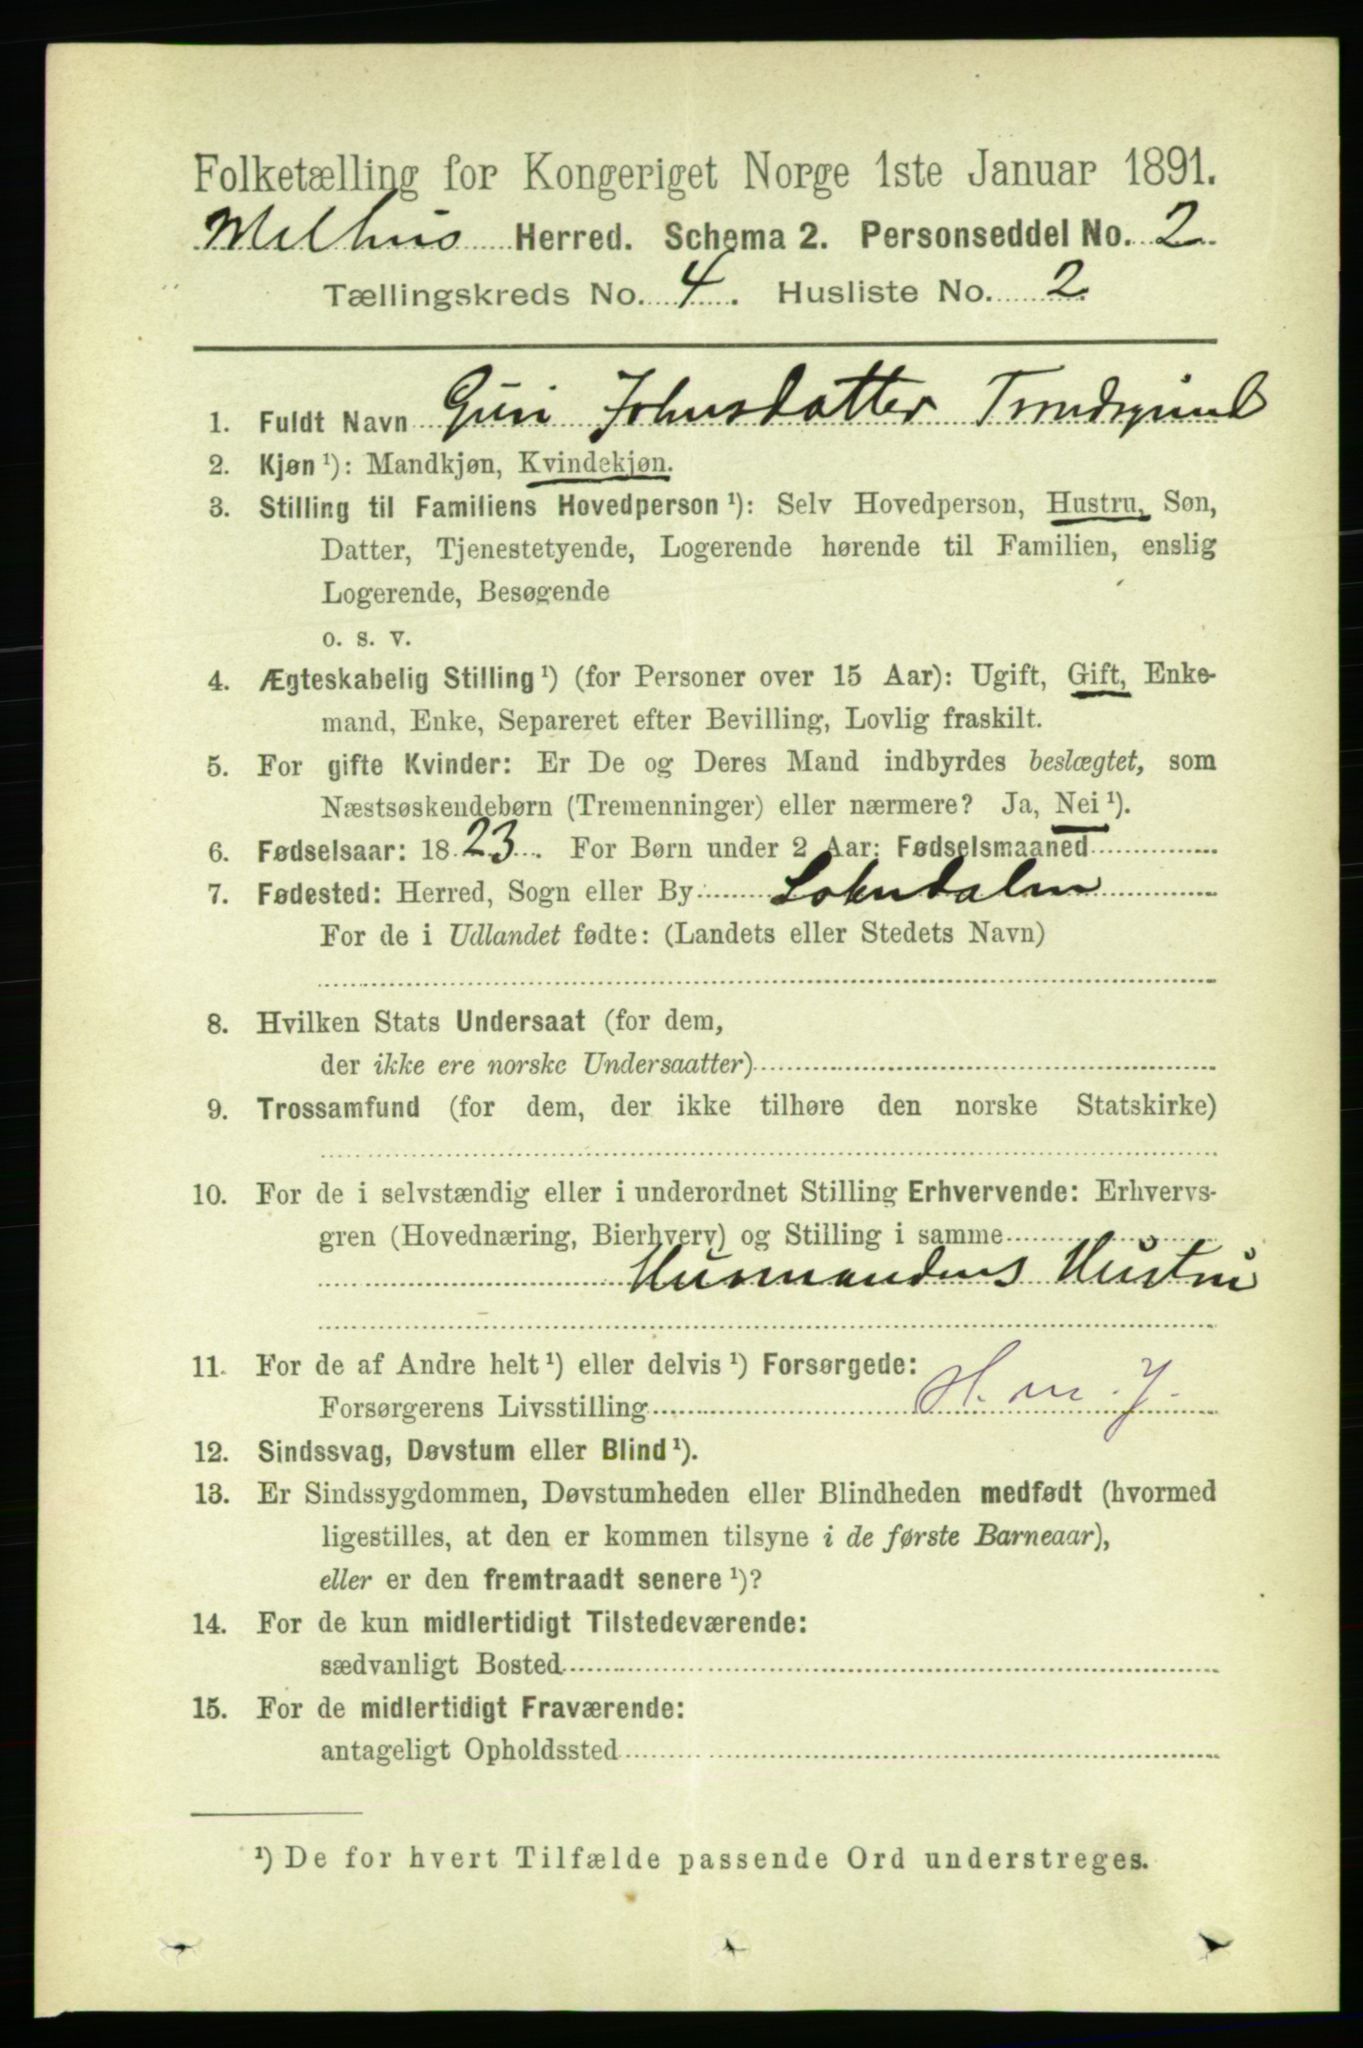 Folketælling for Kongeriget Norge 1ste Januar 1891.
Melhus Herred. Schema 2. Personseddel No. 2.
Tællingskreds No. 4. Husliste No. 2.
1. Fuldt Navn Guri Johnsdatter
2. Kjøn ¹): Mandkjøn, Kvindekjøn.
3. Stilling til Familiens Hovedperson ¹): Selv Hovedperson, Hustru, Søn,
Datter, Tjenestetyende, Logerende hørende til Familien, enslig
Logerende, Besøgende
o. s. v.
4. Ægteskabelig Stilling ¹) (for Personer over 15 Aar): Ugift, Gift, Enke-
mand, Enke, Separeret efter Bevilling, Lovlig fraskilt.
5. For gifte Kvinder: Er De og Deres Mand indbyrdes beslægtet, som
Næstsøskendebørn (Tremenninger) eller nærmere? Ja, Nei ¹).
6. Fødselsaar: 1823. For Børn under 2 Aar: Fødselsmaaned
7. Fødested: Herred, Sogn eller By Soknedalen
For de i Udlandet fødte: (Landets eller Stedets Navn)
8. Hvilken Stats Undersaat (for dem,
der ikke ere norske Undersaatter)
9. Trossamfund (for dem, der ikke tilhøre den norske Statskirke)
10. For de i selvstændig eller i underordnet Stilling Erhvervende: Erhvervs-
gren (Hovednæring, Bierhverv) og Stilling i samme
Husmandens Hustru
11. For de af Andre helt ¹) eller delvis ¹) Forsørgede:
Forsørgerens Livsstilling H. m. J.
12. Sindssvag, Døvstum eller Blind ¹).
13. Er Sindssygdommen, Døvstumheden eller Blindheden medfødt (hvormed
ligestilles, at den er kommen tilsyne i de første Barneaar),
eller er den fremtraadt senere ¹)?
14. For de kun midlertidigt Tilstedeværende:
sædvanligt Bosted
15. For de midlertidigt Fraværende:
antageligt Opholdssted
¹) De for hvert Tilfælde passende Ord understreges.